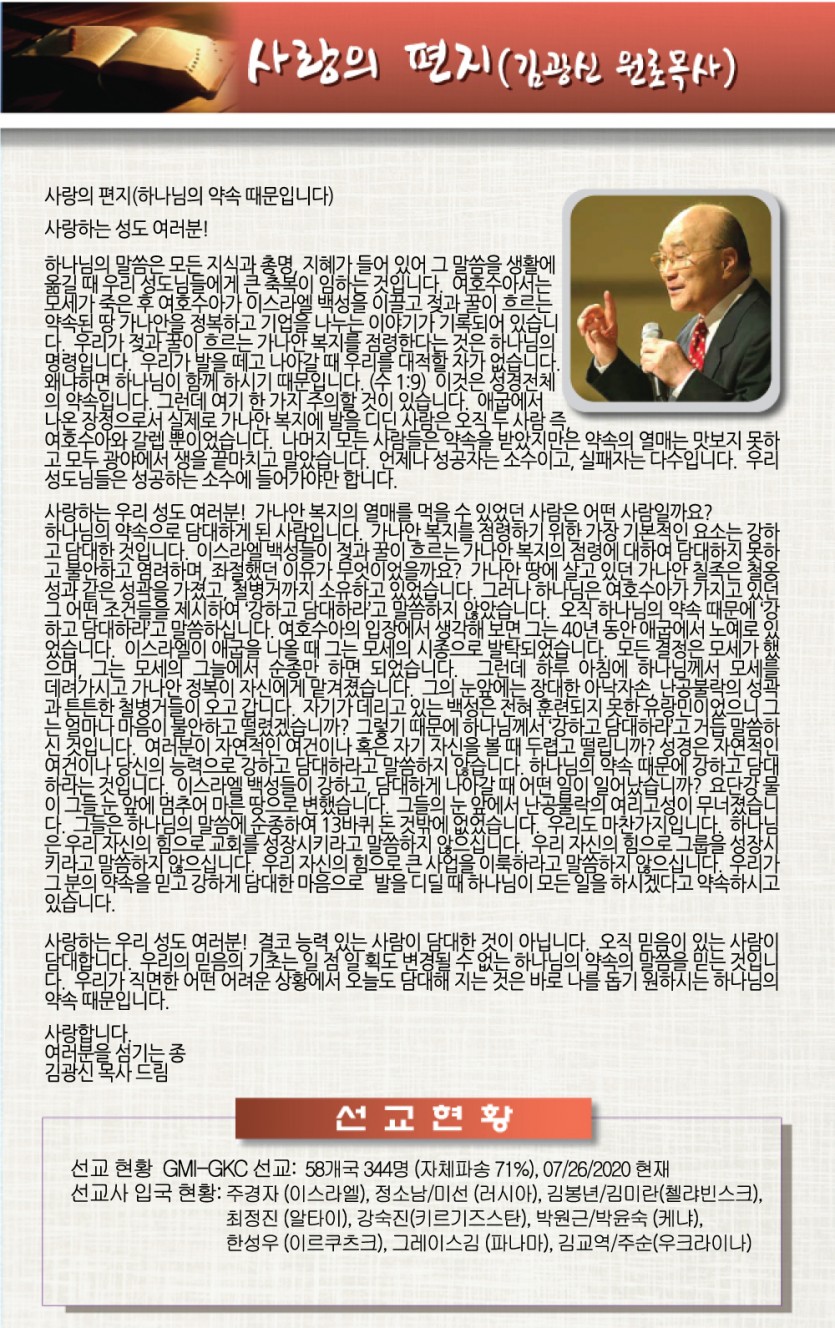 사랑의 편지(김광신 원로목사)
사랑의 편지(하나님의 약속 때문입니다)
사랑하는 성도 여러분!
하나님의 말씀은 모든 지식과 총명, 지혜가 들어 있어 그 말씀을 생활에
옮길 때 우리 성도님들에게 큰 축복이 임하는 것입니다. 여호수아서는
모세가 죽은 후 여호수아가 이스라엘 백성을 이끌고 젖과 꿀이 흐르는
약속된 땅 가나안을 정복하고 기업을 나누는 이야기가 기록되어 있습니
다. 우리가 젖과 꿀이 흐르는 가나안 복지를 점령한다는 것은 하나님의
명령입니다. 우리가 발을 떼고 나아갈 때 우리를 대적할 자가 없습니다.
왜냐하면 하나님이 함께 하시기 때문입니다. (수 1:9) 이것은 성경전체
의 약속입니다. 그런데 여기 한 가지 주의할 것이 있습니다. 애굽에서
나온 장정으로서 실제로 가나안 복지에 발을 디딘 사람은 오직 두 사람 즉,
여호수아와 갈렙 뿐이었습니다. 나머지 모든 사람들은 약속을 받았지만은 약속의 열매는 맛보지 못하
고 모두 광야에서 생을 끝마치고 말았습니다. 언제나 성공자는 소수이고, 실패자는 다수입니다. 우리
성도님들은 성공하는 소수에 들어가야만 합니다.
사랑하는 우리 성도 여러분! 가나안 복지의 열매를 먹을 수 있었던 사람은 어떤 사람일까요?
하나님의 약속으로 담대하게 된 사람입니다. 가나안 복지를 점령하기 위한 가장 기본적인 요소는 강하
고 담대한 것입니다. 이스라엘 백성들이 젖과 꿀이 흐르는 가나안 복지의 점령에 대하여 담대하지 못하
고 불안하고 염려하며, 좌절했던 이유가 무엇이었을까요? 가나안 땅에 살고 있던 가나안 칠족은 철옹
성과 같은 성곽을 가졌고, 철병거까지 소유하고 있었습니다. 그러나 하나님은 여호수아가 가지고 있던
그 어떤 조건들을 제시하여 ‘강하고 담대하라’고 말씀하지 않았습니다. 오직 하나님의 약속 때문에 ‘강
하고 담대하라’고 말씀하십니다. 여호수아의 입장에서 생각해 보면 그는 40년 동안 애굽에서 노예로 있
었습니다. 이스라엘이 애굽을 나올 때 그는 모세의 시종으로 발탁되었습니다. 모든 결정은 모세가 했
으며, 그는 모세의 그늘에서 순종만 하면 되었습니다. 그런데 하루 아침에 하나님께서 모세를
데려가시고 가나안 정복이 자신에게 맡겨졌습니다. 그의 눈앞에는 장대한 아낙자손, 난공불락의 성곽
과 튼튼한 철병거들이 오고 갑니다. 자기가 데리고 있는 백성은 전혀 훈련되지 못한 유랑민이었으니 그
는 얼마나 마음이 불안하고 떨렸겠습니까? 그렇기 때문에 하나님께서 ‘강하고 담대하라’고 거듭 말씀하
신 것입니다. 여러분이 자연적인 여건이나 혹은 자기 자신을 볼 때 두렵고 떨립니까? 성경은 자연적인
여건이나 당신의 능력으로 강하고 담대하라고 말씀하지 않습니다. 하나님의 약속 때문에 강하고 담대
하라는 것입니다. 이스라엘 백성들이 강하고, 담대하게 나아갈 때 어떤 일이 일어났습니까? 요단강 물
이 그들 눈 앞에 멈추어 마른 땅으로 변했습니다. 그들의 눈 앞에서 난공불락의 여리고성이 무너졌습니
다. 그들은 하나님의 말씀에 순종하여 13바퀴 돈 것밖에 없었습니다. 우리도 마찬가지입니다. 하나님
은 우리 자신의 힘으로 교회를 성장시키라고 말씀하지 않으십니다. 우리 자신의 힘으로 그룹을 성장시
키라고 말씀하지 않으십니다. 우리 자신의 힘으로 큰 사업을 이룩하라고 말씀하지 않으십니다. 우리가
그 분의 약속을 믿고 강하게 담대한 마음으로 발을 디딜 때 하나님이 모든 일을 하시겠다고 약속하시고
있습니다.
사랑하는 우리 성도 여러분! 결코 능력 있는 사람이 담대한 것이 아닙니다. 오직 믿음이 있는 사람이
담대합니다. 우리의 믿음의 기초는 일 점 일 획도 변경될 수 없는 하나님의 약속의 말씀을 믿는 것입니
다. 우리가 직면한 어떤 어려운 상황에서 오늘도 담대해 지는 것은 바로 나를 돕기 원하시는 하나님의
약속 때문입니다.
사랑합니다.
여러분을 섬기는 종
김광신 목사 드림
선교현황
선교 현황 GMI-GKC 선교: 58개국 344명 (자체파송 71%), 07/26/2020 현재
선교사 입국 현황: 주경자 (이스라엘), 정소남/미선 (러시아), 김봉년/김미란(첼랴빈스크),
최정진 (알타이), 강숙진(키르기즈스탄), 박원근/박윤숙 (케냐),
한성우 (이르쿠츠크), 그레이스김 (파나마), 김교역/주순(우크라이나)